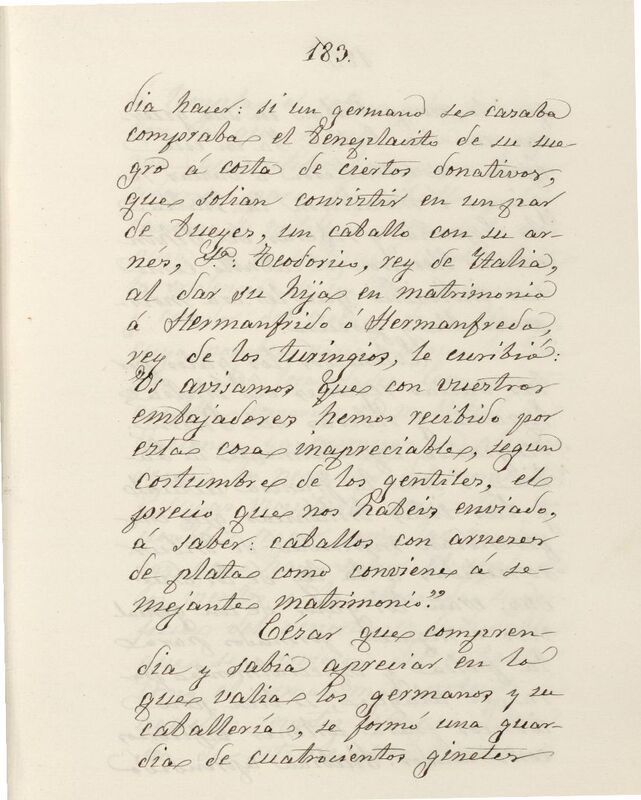 183.
dia hacer: si un germano se casaba
compraba el beneplacito de su sue-
gro á costa de ciertos donativos,
que solian consistir en un par
de bueyes, un caballo con su ar-
nés, &ª: Teodorico, rey de Italia,
al dar su hija en matrimonio
á Hermanfrido ó Hermanfredo,
rey de los turingios, le escribió:
"Os avisamos que con vuestros
embajadores hemos recibido por
esta cosa inapreciable, segun
costumbre de los gentiles, el
precio que nos habeis enviado,
á saber: caballos con arneses
de plata como conviene á se-
mejante matrimonio."
César que compren-
dia y sabia apreciar en lo
que valia los germanos y su
caballería, se formó una guar-
dia de cuatrocientos ginetes